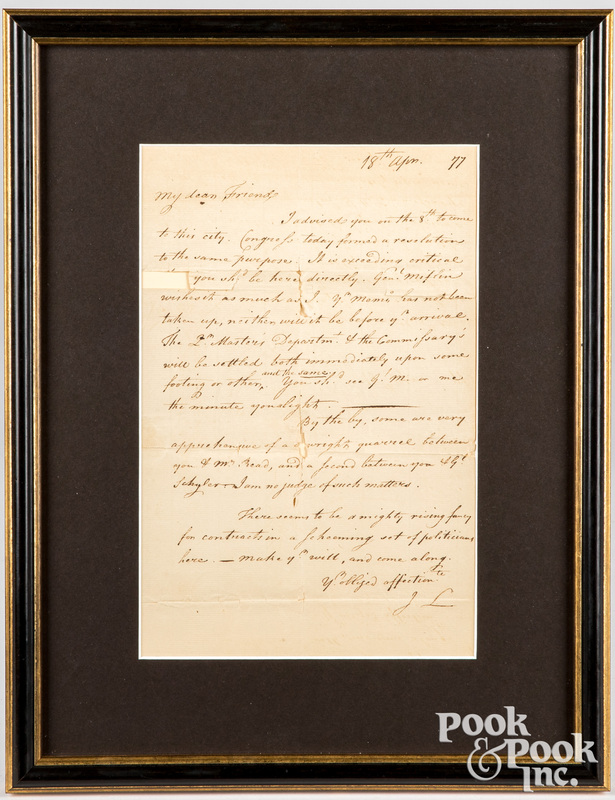 18th Apr. 77
My dear Friend
I advised you on the 8th to come
to this city. Congress today formed a resolution
to the same purpose. It is exceeding critical
you shd be here directly. Genl Mifflin
wishes it as much as I. Yr Memo has not been
taken up, neither will it be before yr arrival.
The Qr Masters Departmt & the Commissary's
will be settled both immediately upon some
footing or other, and the same. You shd see Gl M. or me
the minute you alight.
By the by, some are very
apprehensive of a wright quarrel between
you & Mr Read, and a second between you & Gl
Schyler. I am no judge of such matters.
There seems to be a mighty rising fancy
for contracts in a scheeming set of politicians
here. — make yr will, and come along.
Yr obliged affectionte
J L
POOK
& POOK
INC.